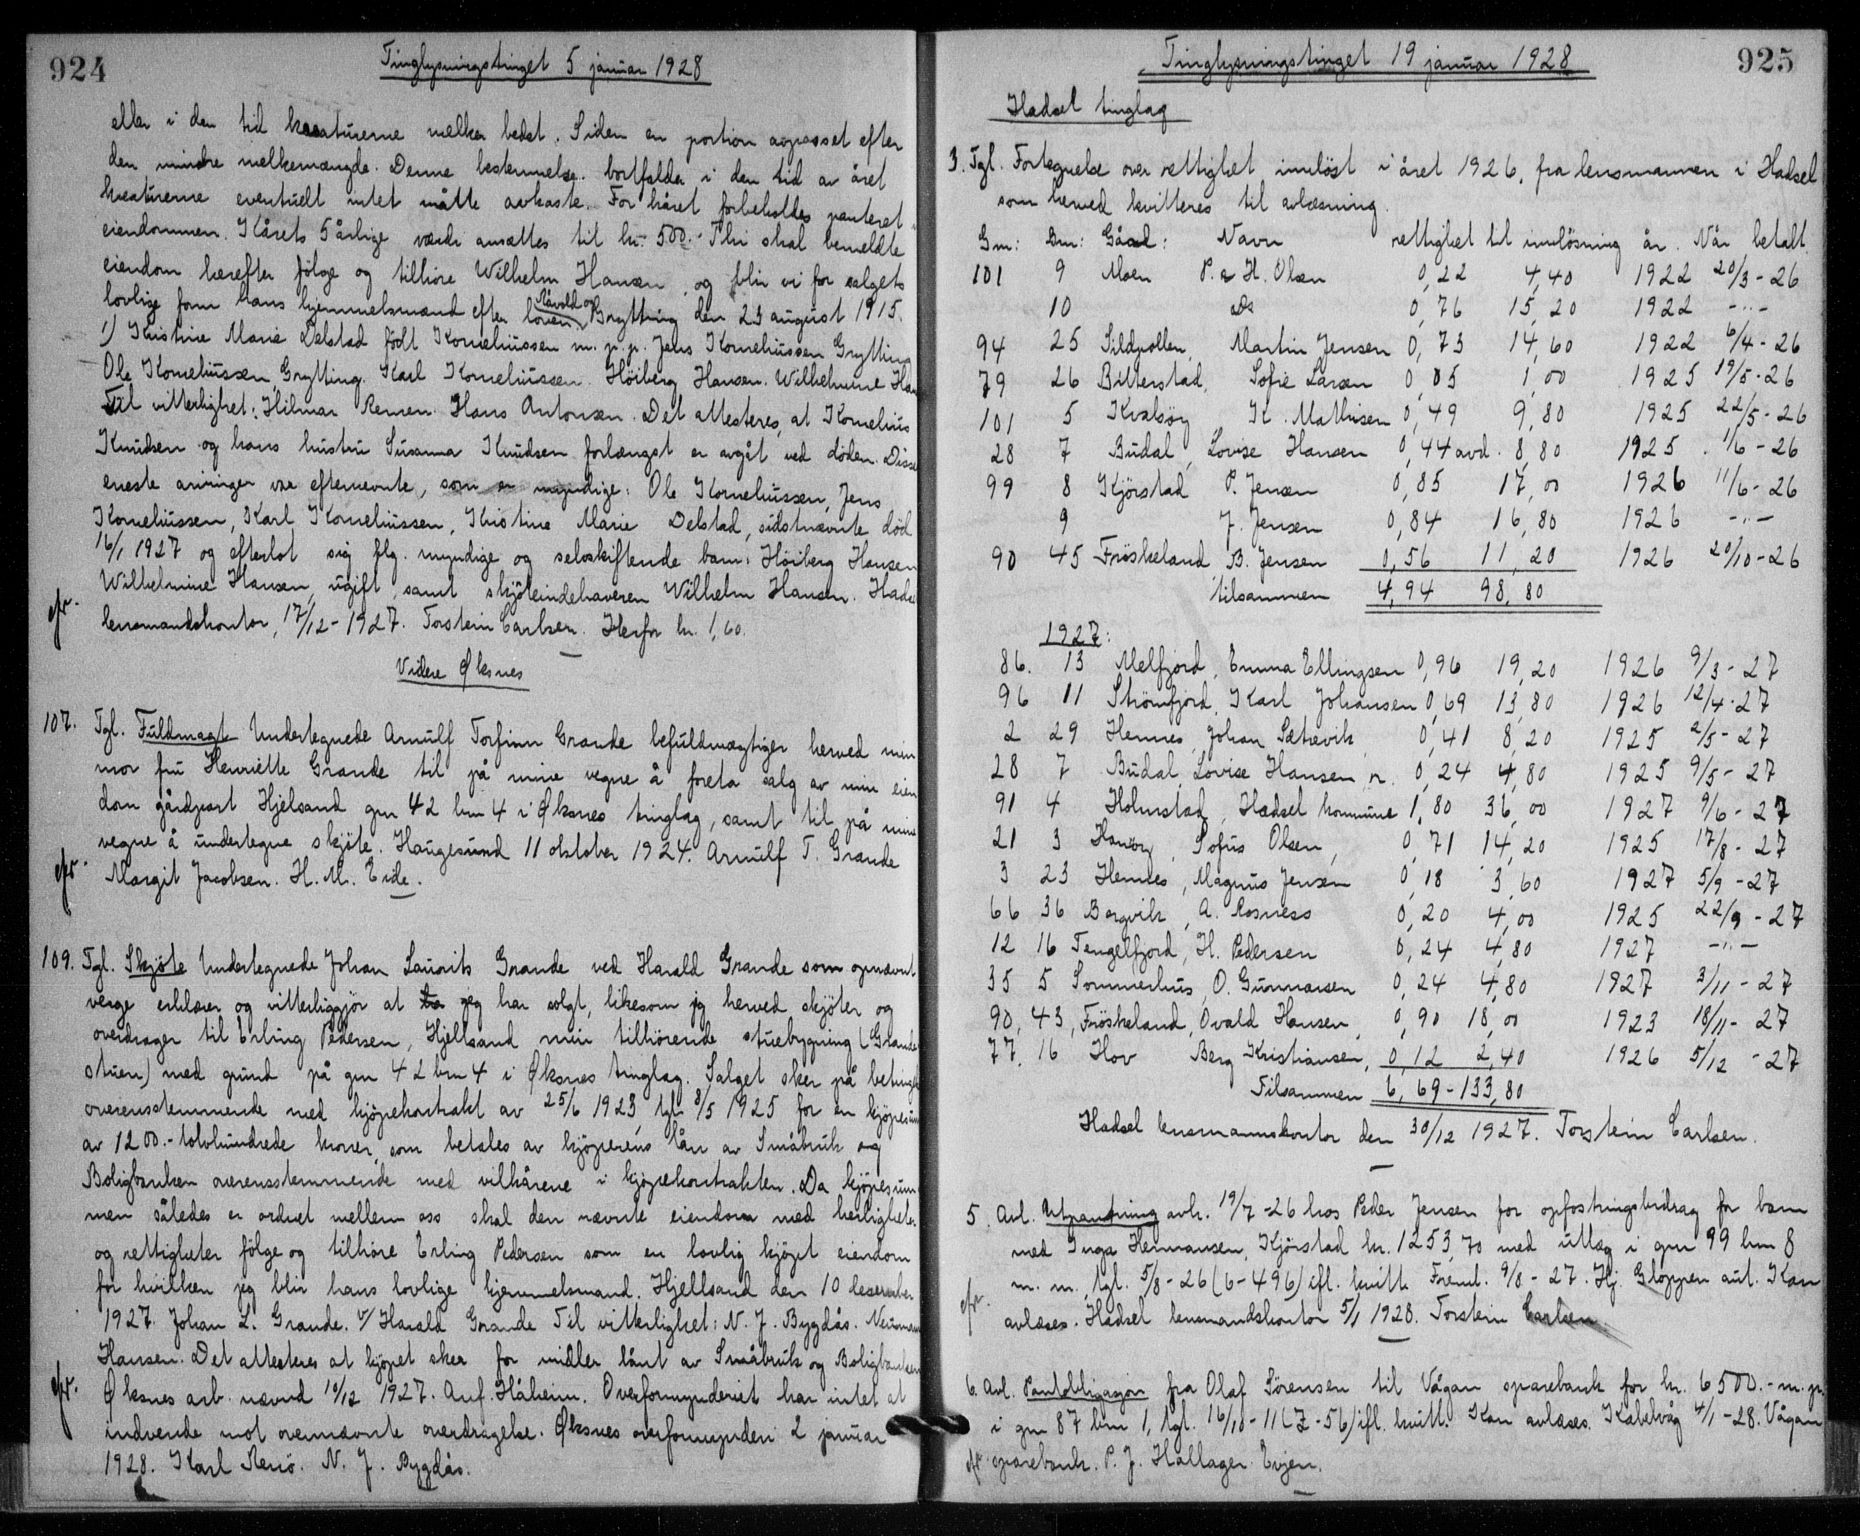 924
Tinglysningstinget 5 januar 1928
eller i den tid kreaturerne melker bedst. Siden en portion avpasset efter
den mindre melkemængde. Denne bestemmelse bortfalder i den tid av året
kreaturerne eventuelt intet måtte avkaste. For kåret forbeholdes panteret i
eiendommen. Kårets 5 årlige værdi ansættes til kr. 500.- Thi skal bemeldte
eiendom herefter følge og tilhøre Wilhelm Hansen, og blir vi for salgets
lovlige form hans hjemmelsmænd efter loven. Råvold og Grytting den 23 august 1915.
1) Kristine Marie Delstad født Korneliussen m.p.p. Jens Korneliussen Grytting
Ole Korneliussen, Grytting. Karl Korneliussen. Höiberg Hansen. Wilhelmine Han
Til vitterlighet: Hilmar Reinen. Hans Antonsen. Det attesteres, at Kornelius
Knudsen og hans hustru Susanna Knudsen forlængst er avgåt ved döden. Disse
eneste arvinger var efternevnte, som er myndige: Ole Korneliussen, Jens
Korneliussen, Karl Korneliussen, Kristine Marie Delstad, sidstnævnte död
16/1 1927 og efterlot sig flg. myndige og selvskiftende barn: Höiberg Hansen
Wilhelmine Hansen, ugift, samt skjöteindehaveren Wilhelm Hansen. Hadsel
lensmandskontor, 17/12-1927. Torstein Carlsen. Herfor kr. 1,60.
Videre Øksnes
107. Tgl. Fuldmagt Undertegnede Arnulf Torfinn Grande befuldmægtiger herved min
mor fru Henriette Grande til på mine vegne å foreta salg av min eien
dom gårdpart Hjelsand gnr 42 bnr 4 i Øksnes tinglag, samt til på mine
vegne å undertegne skjöte. Haugesund 11 oktober 1924. Arnulf T. Grande
Margit Jacobsen. H. M. Eide.
109. Tgl. Skjöte Undertegnede Johan Laurits Grande ved Harald Grande som opnævnt
verge erklærer og vitterliggjör at jeg har solgt, likesom jeg herved skjöter og
overdrager til Erling Pedersen, Hjellsand min tilhörende stuebygning (Grande
stuen) med grund på gnr 42 bnr 4 i Øksnes tinglag. Salget sker på betingel
overensstemmende med kjöpekontrakt av 25/6 1923, tgl. 8/5 1925 for en kjöpesum
av 1200.- tolvhundrede kroner, som betales av kjöperens lån av Småbruk og
Boligbanken overensstemmende med vilkårene i kjöpekontrakten. Da kjöpesum
men således er ordnet mellem oss skal den nævnte eiendom med herligheter
og rettigheter fölge og tilhöre Erling Pedersen som en lovlig kjöpt eiendom
for hvilken jeg blir hans lovlige hjemmelsmand. Hjellsand den 10 desember
1927. Johan L. Grande. v/ Harald Grande Til vitterlighet: N. J. Bygdås. Neumann
Hansen. Det attesteres at kjöpet sker for midler lånt av Småbruk og Boligbanken
Øksnes arb. nævnd 10/12 1927. Anf. Håheim. Overformynderiet har intet at
indvende mot ovennævnte overdragelse. Øksnes overformynderi 2 januar
1928. Karl Reinö. N. J. Bygdås.
925
Tinglysningstinget 19 januar 1928
Hadsel tinglag
3. Tgl. Fortegnelse over rettighet innlöst i året 1926, fra lensmannen i Hadsel
som herved kvitteres til avlæsning.
Gnr: Bnr: Gård: Navn rettighet til innlösning år. Når betalt
101 9 Moen P. & H. Olsen 0,22 4,40 1922 20/3-26
10 do 0,76 15,20 1922 -"-
94 25 Sildpollen, Martin Jensen 0,73 14,60 1922 6/4-26
79 26 Bitterstad, Sofie Larsen 0,05 1,00 1925 19/5-26
101 5 Kvalsöy K. Mathisen 0,49 9,80 1925 22/5-26
28 7 Budal, Lovise Hansen 0,44 avd. 8,80 1925 1/6-26
99 8 Kjörstad P. Jensen 0,85 17,00 1926 11/6-26
9 J. Jensen 0,84 16,80 1926 -"-
90 45 Fröskeland B. Jensen 0,56 11,20 1926 20/10-26
tilsammen 4,94 98,80
1927:
86. 13 Melfjord, Emma Ellingsen 0,96 19,20 1926 9/3-27
96 11 Strömfjord, Karl Johansen 0,69 13,80 1926 12/4-27
2 29 Hennes, Johan Sætrevik 0,41 8,20 1925 2/5-27
28 7 Budal, Lovise Hansen, r. 0,24 4,80 1925 9/5-27
91 4 Holmstad, Hadsel kommune 1,80 36,00 1927 9/6-27
21 3 Hanöy, Sofus Olsen, 0,71 14,20 1925 17/8-27
3 23 Hennes, Magnus Jensen 0,18 3,60 1927 5/9-27
66 36 Borgvik, A. Rosness 0,20 4,00 1925 22/9-27
12 16 Tengelfjord, H. Pedersen 0,24 4,80 1927 -"-
35 5 Sommerhus, O. Gunnarsen 0,24 4,80 1927 3/11-27
90, 43, Fröskeland, Ovald Hansen, 0,90 18,00 1923 18/11-27
77. 16 Hov Berg Kristiansen, 0,12 2,40 1926 5/12-27
Tilsammen 6,69-133,80
Hadsel lensmannskontor den 30/12 1927. Torstein Carlsen.
5. Avl. Utpantning avh. 19/7-26 hos Peder Jensen for opfostringsbidrag for barn
med Inga Hermansen, Kjörstad kr. 1253,70 med utlæg i gnr 99 bnr 8
m. m., tgl. 5/8-26 (6-496) ifl. kvitt. Freml. 9/8-27. Hj. Gloppen aut. Kan
avlæses. Hadsel lensmandskontor 5/1 1928. Torstein Carlsen
6. Avl. Pantobligasjon fra Olaf Sörensen til Vågan sparebank for kr. 6500.- m. p.
i gnr 87 bnr 1, tgl. 16/10-11 (Z-56) ifl. kvitt. Kan avlæses. Kabelvåg 4/1-28. Vågan
sparebank. P. J. Hallager. Evjen.